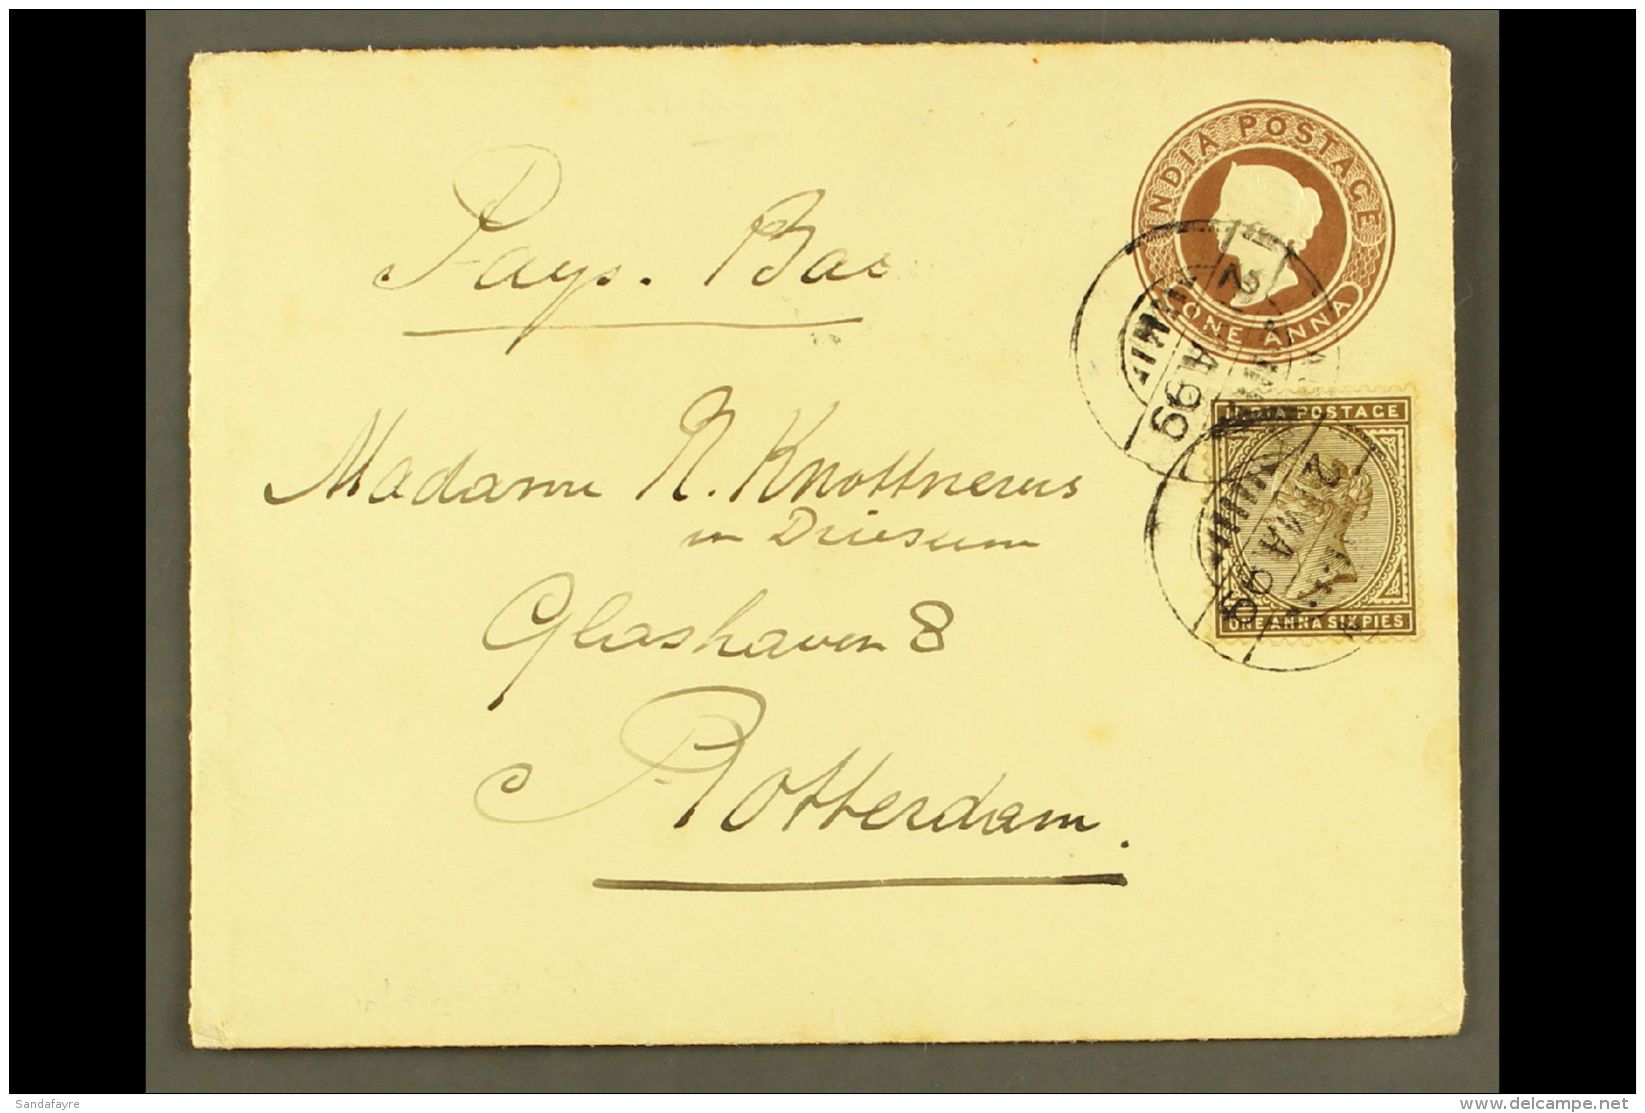 INDIA POSTAGE
ONE ANNA
Pays. Bas
99
INDIA POSTAGE
Madame N. Knottnerus
Driesum
Glashaven 8
ONE ANNA SIX PIES
Rotterdam.
Sandafayre
www.delcampe.net